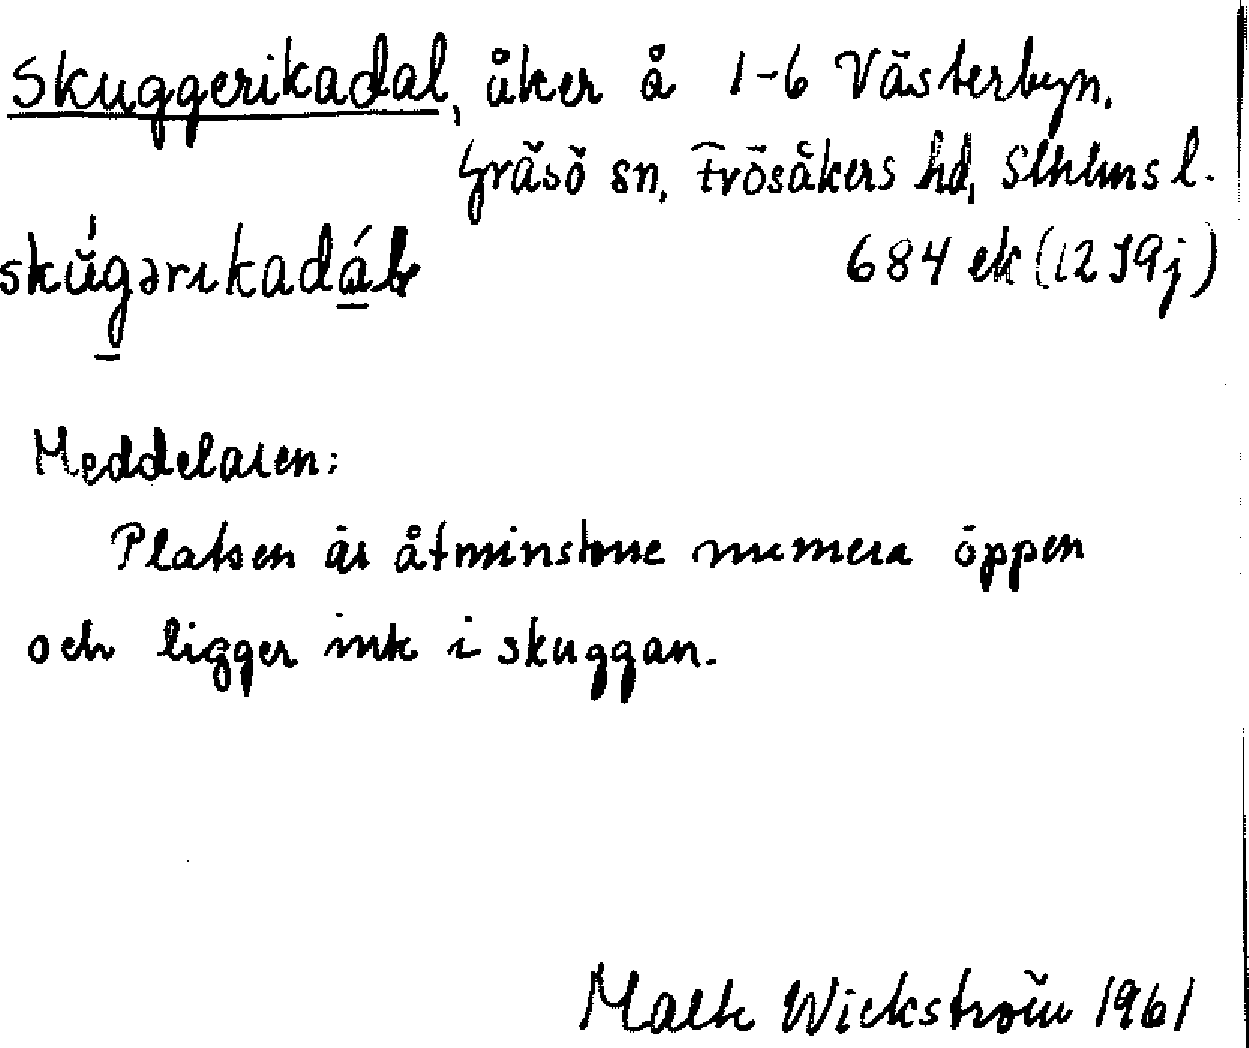 Skuggerikadal, åker å 1-6 Västerbyn.
Gräsö sn, Frösåkers hd, Sthlms l.
684 ek (12 I9j)
Meddelaren:
Platsen är åtminstone numera öppen
och ligger inte i skuggan.
Malte Wickström 1961